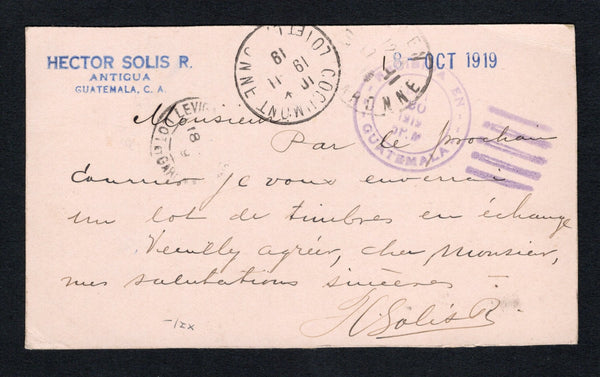 HECTOR SOLIS R.
ANTIGUA
GUATEMALA, C. A.
18 OCT 1919
COCUMONT
19 11
19
GUATEMALA
1919
18
Monsieur
Par le prochain
courrier je vous enverrai
un lot de timbres en échange
Veuilly agréer, cher Monsieur,
mes salutations sincères -
H Solis R.